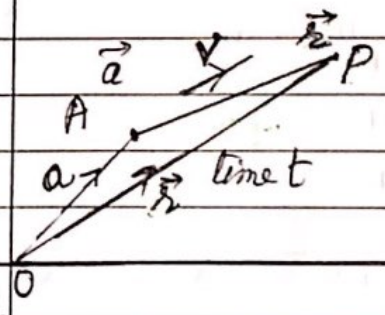 r⃗
V
a⃗
P
A
a
r⃗ time t
O